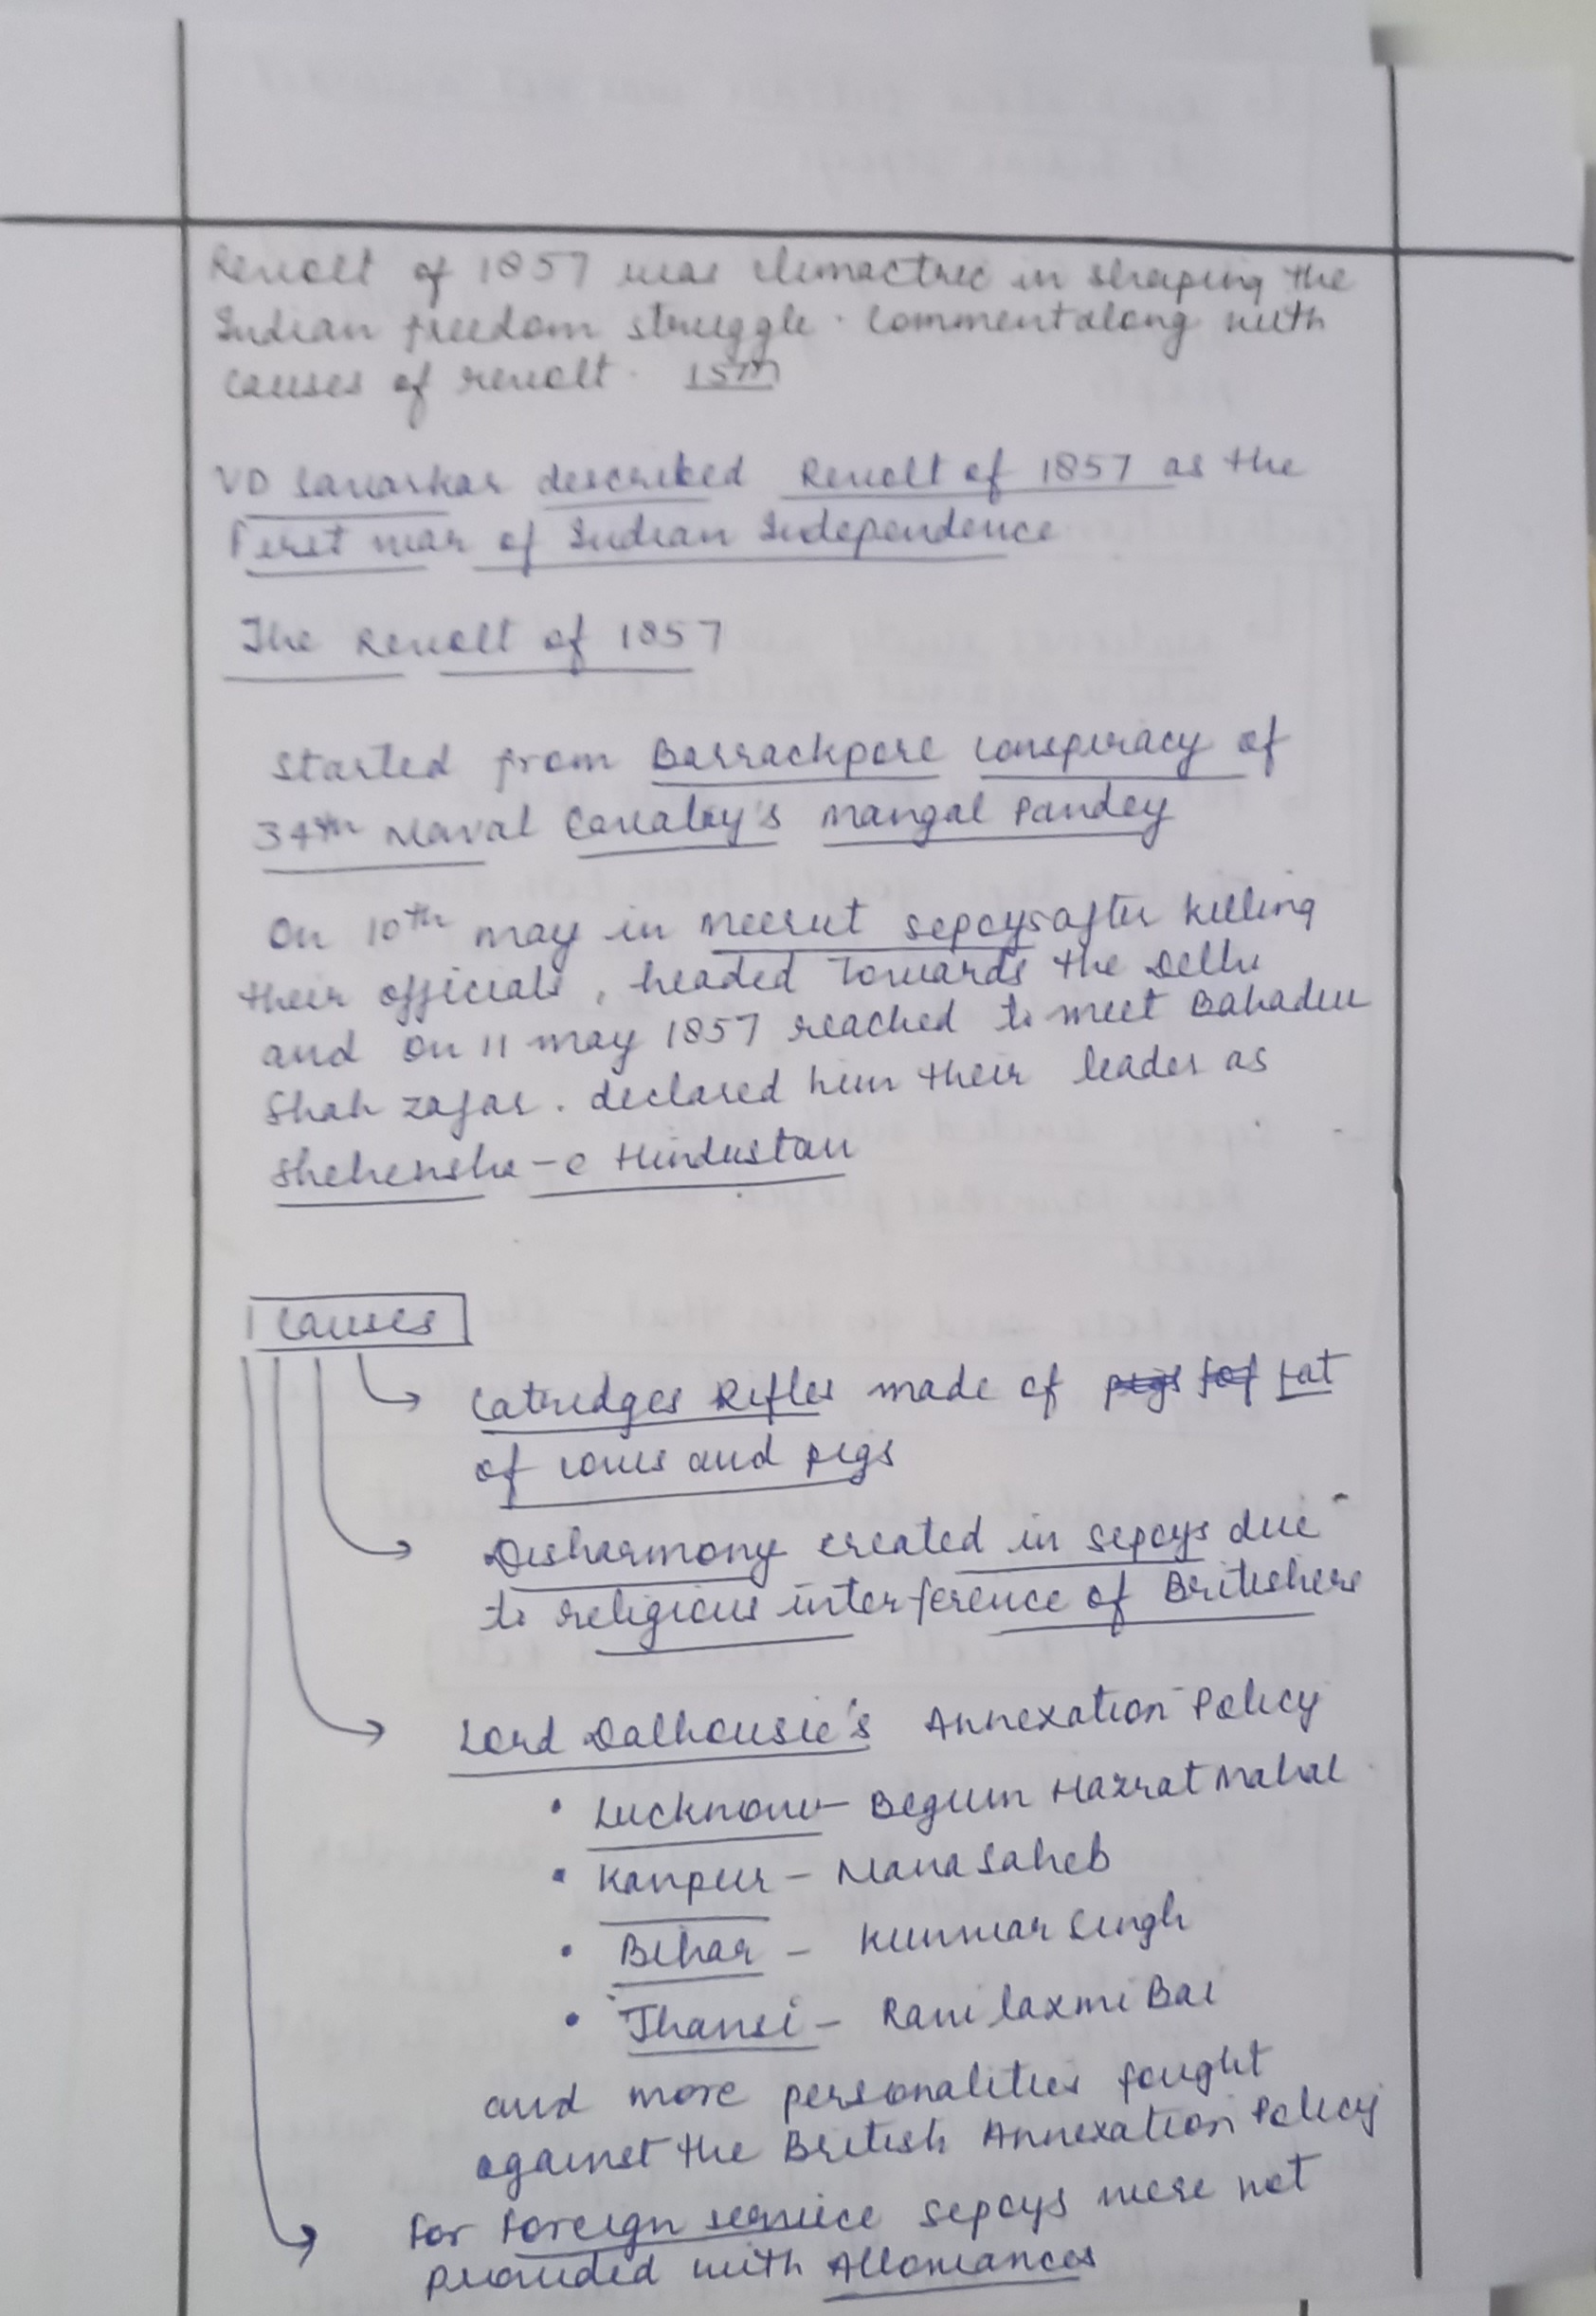 Revolt of 1857 was climactric in shaping the
Indian freedom struggle. Comment along with
causes of revolt. 15m
VD Savarkar described Revolt of 1857 as the
First war of Indian Independence
The Revolt of 1857
Started from Barrackpore conspiracy of
34th Naval Cavalry's Mangal Pandey
On 10th may in meerut sepoys after killing
their officials, headed towards the Delhi
and on 11 may 1857 reached to meet Bahadur
Shah zafar. declared him their leader as
Shehensha-e Hindustan
Causes
Catridges Rifles made of pigs fof fat
of cows and pigs
Disharmony created in sepoys due
to religious interference of Britishers
Lord Dalhousie's Annexation Policy
• Lucknow - Begum Hazrat Mahal
• Kanpur - Nana Saheb
• Bihar - Kunwar Singh
• Jhansi - Rani laxmi Bai
and more personalities fought
against the British Annexation Policy
for foreign service sepoys were not
provided with Allowances